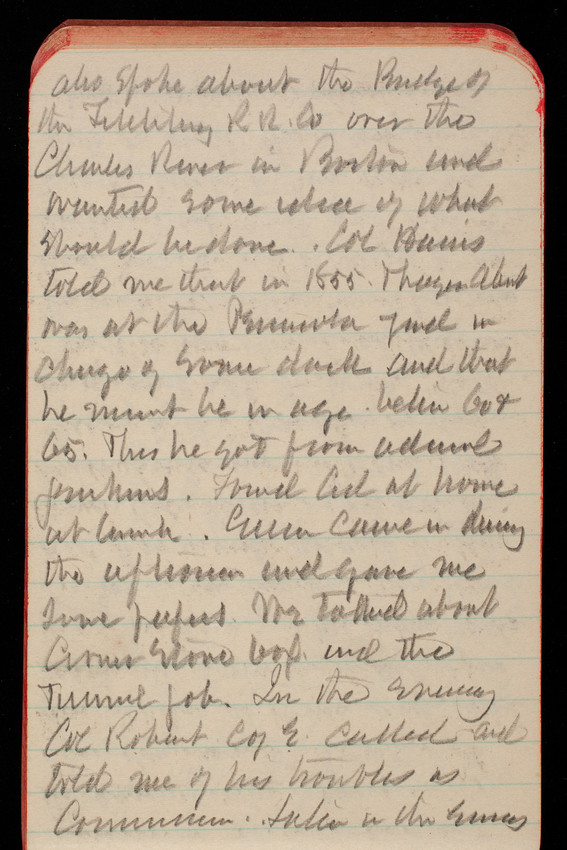 also spoke about the Bridge of
the Fitchburg R R. Co over the
Charles River in Boston and
wanted some idea of what
should be done. Col
told me that in 1855. Thayer Abert
was at the Yard in
charge of some dock and that
he must be in age 60 &
65. This he got from Admiral
Jenkins. Found Ced at home
at lunch. came in during
the afternoon and gave me
some papers. We talked about
Corner Stone box and the
Tunnel job. In the evening
Col Robert C of E called and
told me of his troubles as
Later in the evening